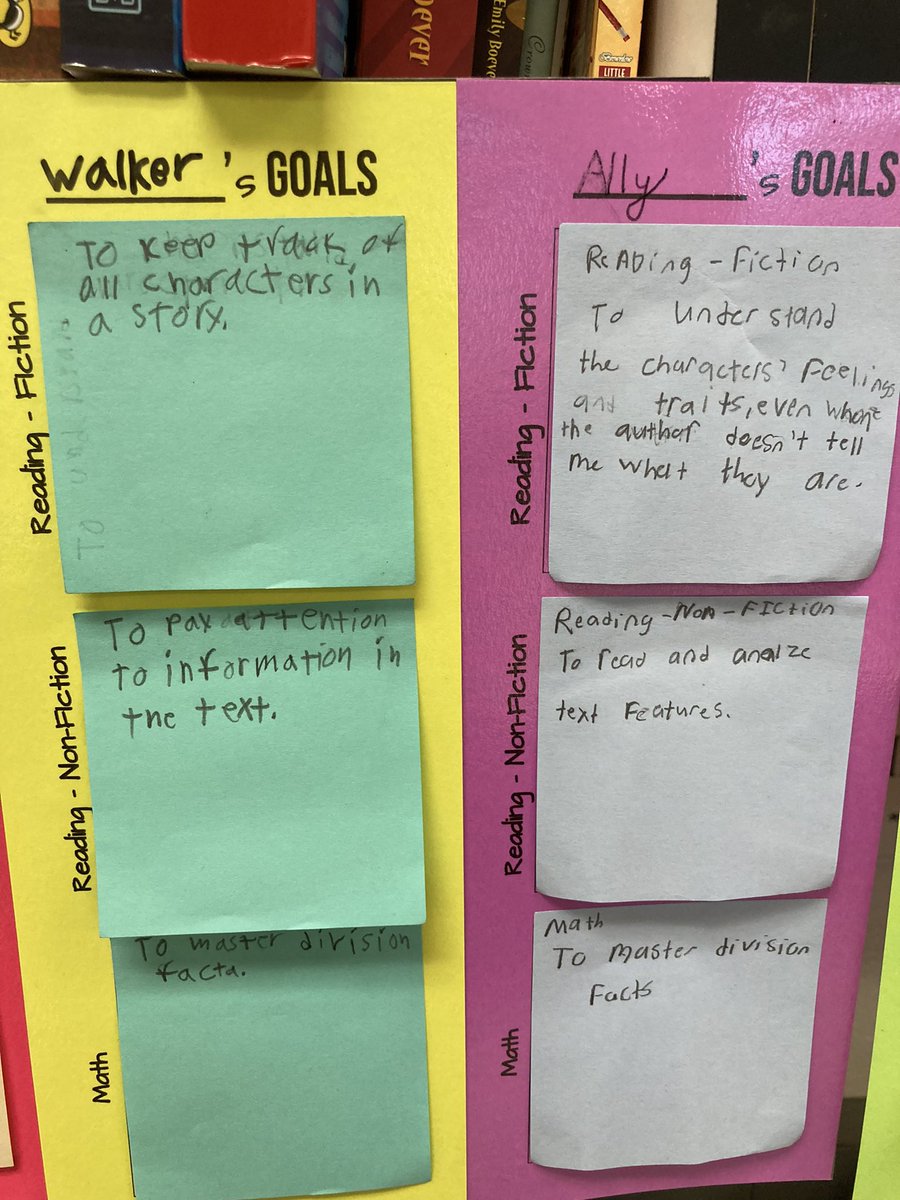 Boever
Emily Boever
Crown
LITTLE
Walker's GOALS
Reading - Fiction
To keep track of
all characters in
a story.
To und
Reading - Non-Fiction
To pay attention
to information in
the text.
Math
To master division
facta.
Ally's GOALS
Reading - Fiction
ReADing - Fiction
To understand
the characters' Feelings
and traits, even when
the author doesn't tell
me what they are.
Reading - Non-Fiction
Reading - Non - FICTION
To read and analze
text Features.
Math
Math
To master division
Facts